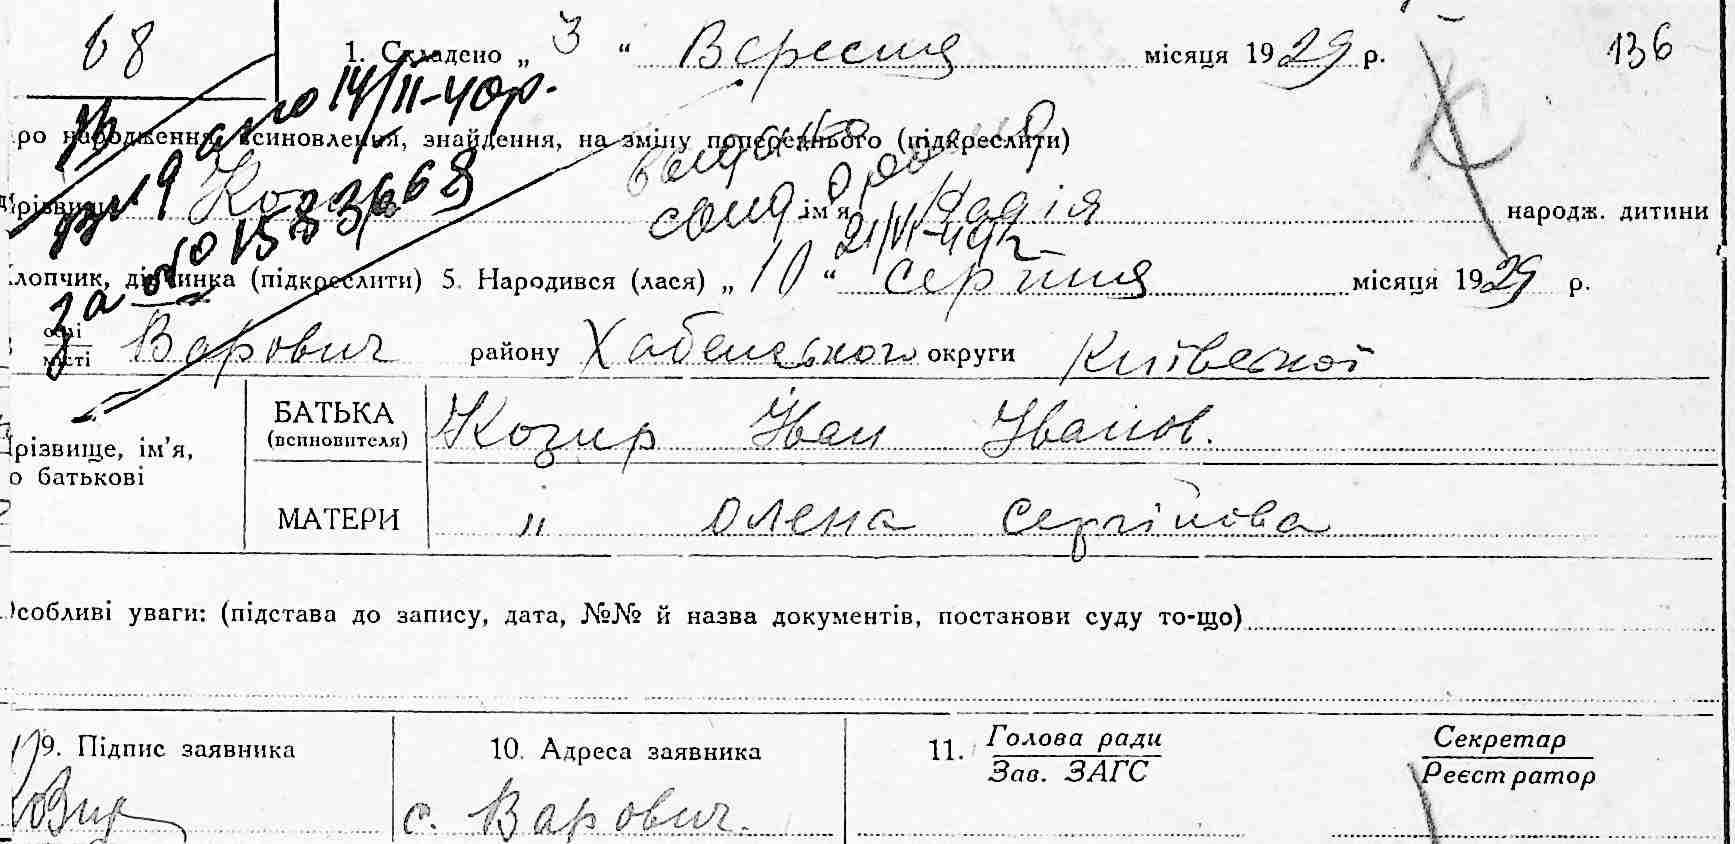 68
1. Складено „ 3 “ Вересня місяця 1929 р. 136
14/II-40р.
ро народження, всиновлення, знайдення, на зміну попереднього (підкреслити)
різвище Козир ім'я Надія народж. дитини
за № 1583668
21/VI-49г
лопчик, дівчинка (підкреслити) 5. Народився (лася) „ 10 “ серпня місяця 1929 р.
селі
місті Варович району Хабенського округи Київської
різвище, ім'я,
о батькові
БАТЬКА
(всиновителя) Козир Іван Іванов.
МАТЕРИ " Олена Сергійова
собливі уваги: (підстава до запису, дата, №№ й назва документів, постанови суду то-що)
9. Підпис заявника 10. Адреса заявника 11. Голова ради Секретар
Зав. ЗАГС Реєстратор
с. Варович.